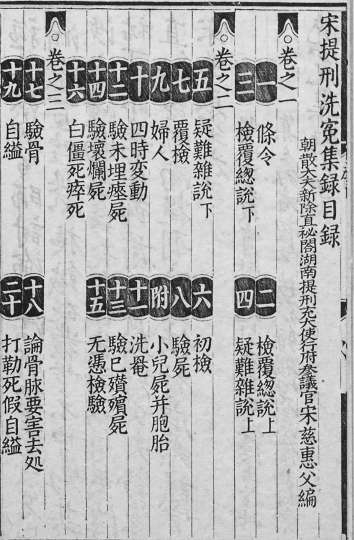 宋提刑洗冤集録目録
朝散大夫新除直秘閣湖南提刑充大使行府叅議官宋慈惠父編
卷之一
一 條令 二 檢覆總說上
三 檢覆總說下 四 疑難雜說上
卷之二
五 疑難雜說下 六 初檢
七 覆檢 八 驗屍
九 婦人 附 小兒屍并胞胎
十 四時変動 十一 洗罨
十二 驗未埋瘞屍 十三 驗已攢殯屍
十四 驗壞爛屍 十五 无憑檢驗
十六 白僵死瘁死
卷之三
十七 驗骨 十八 論骨脉要害去処
十九 自縊 二十 打勒死假自縊